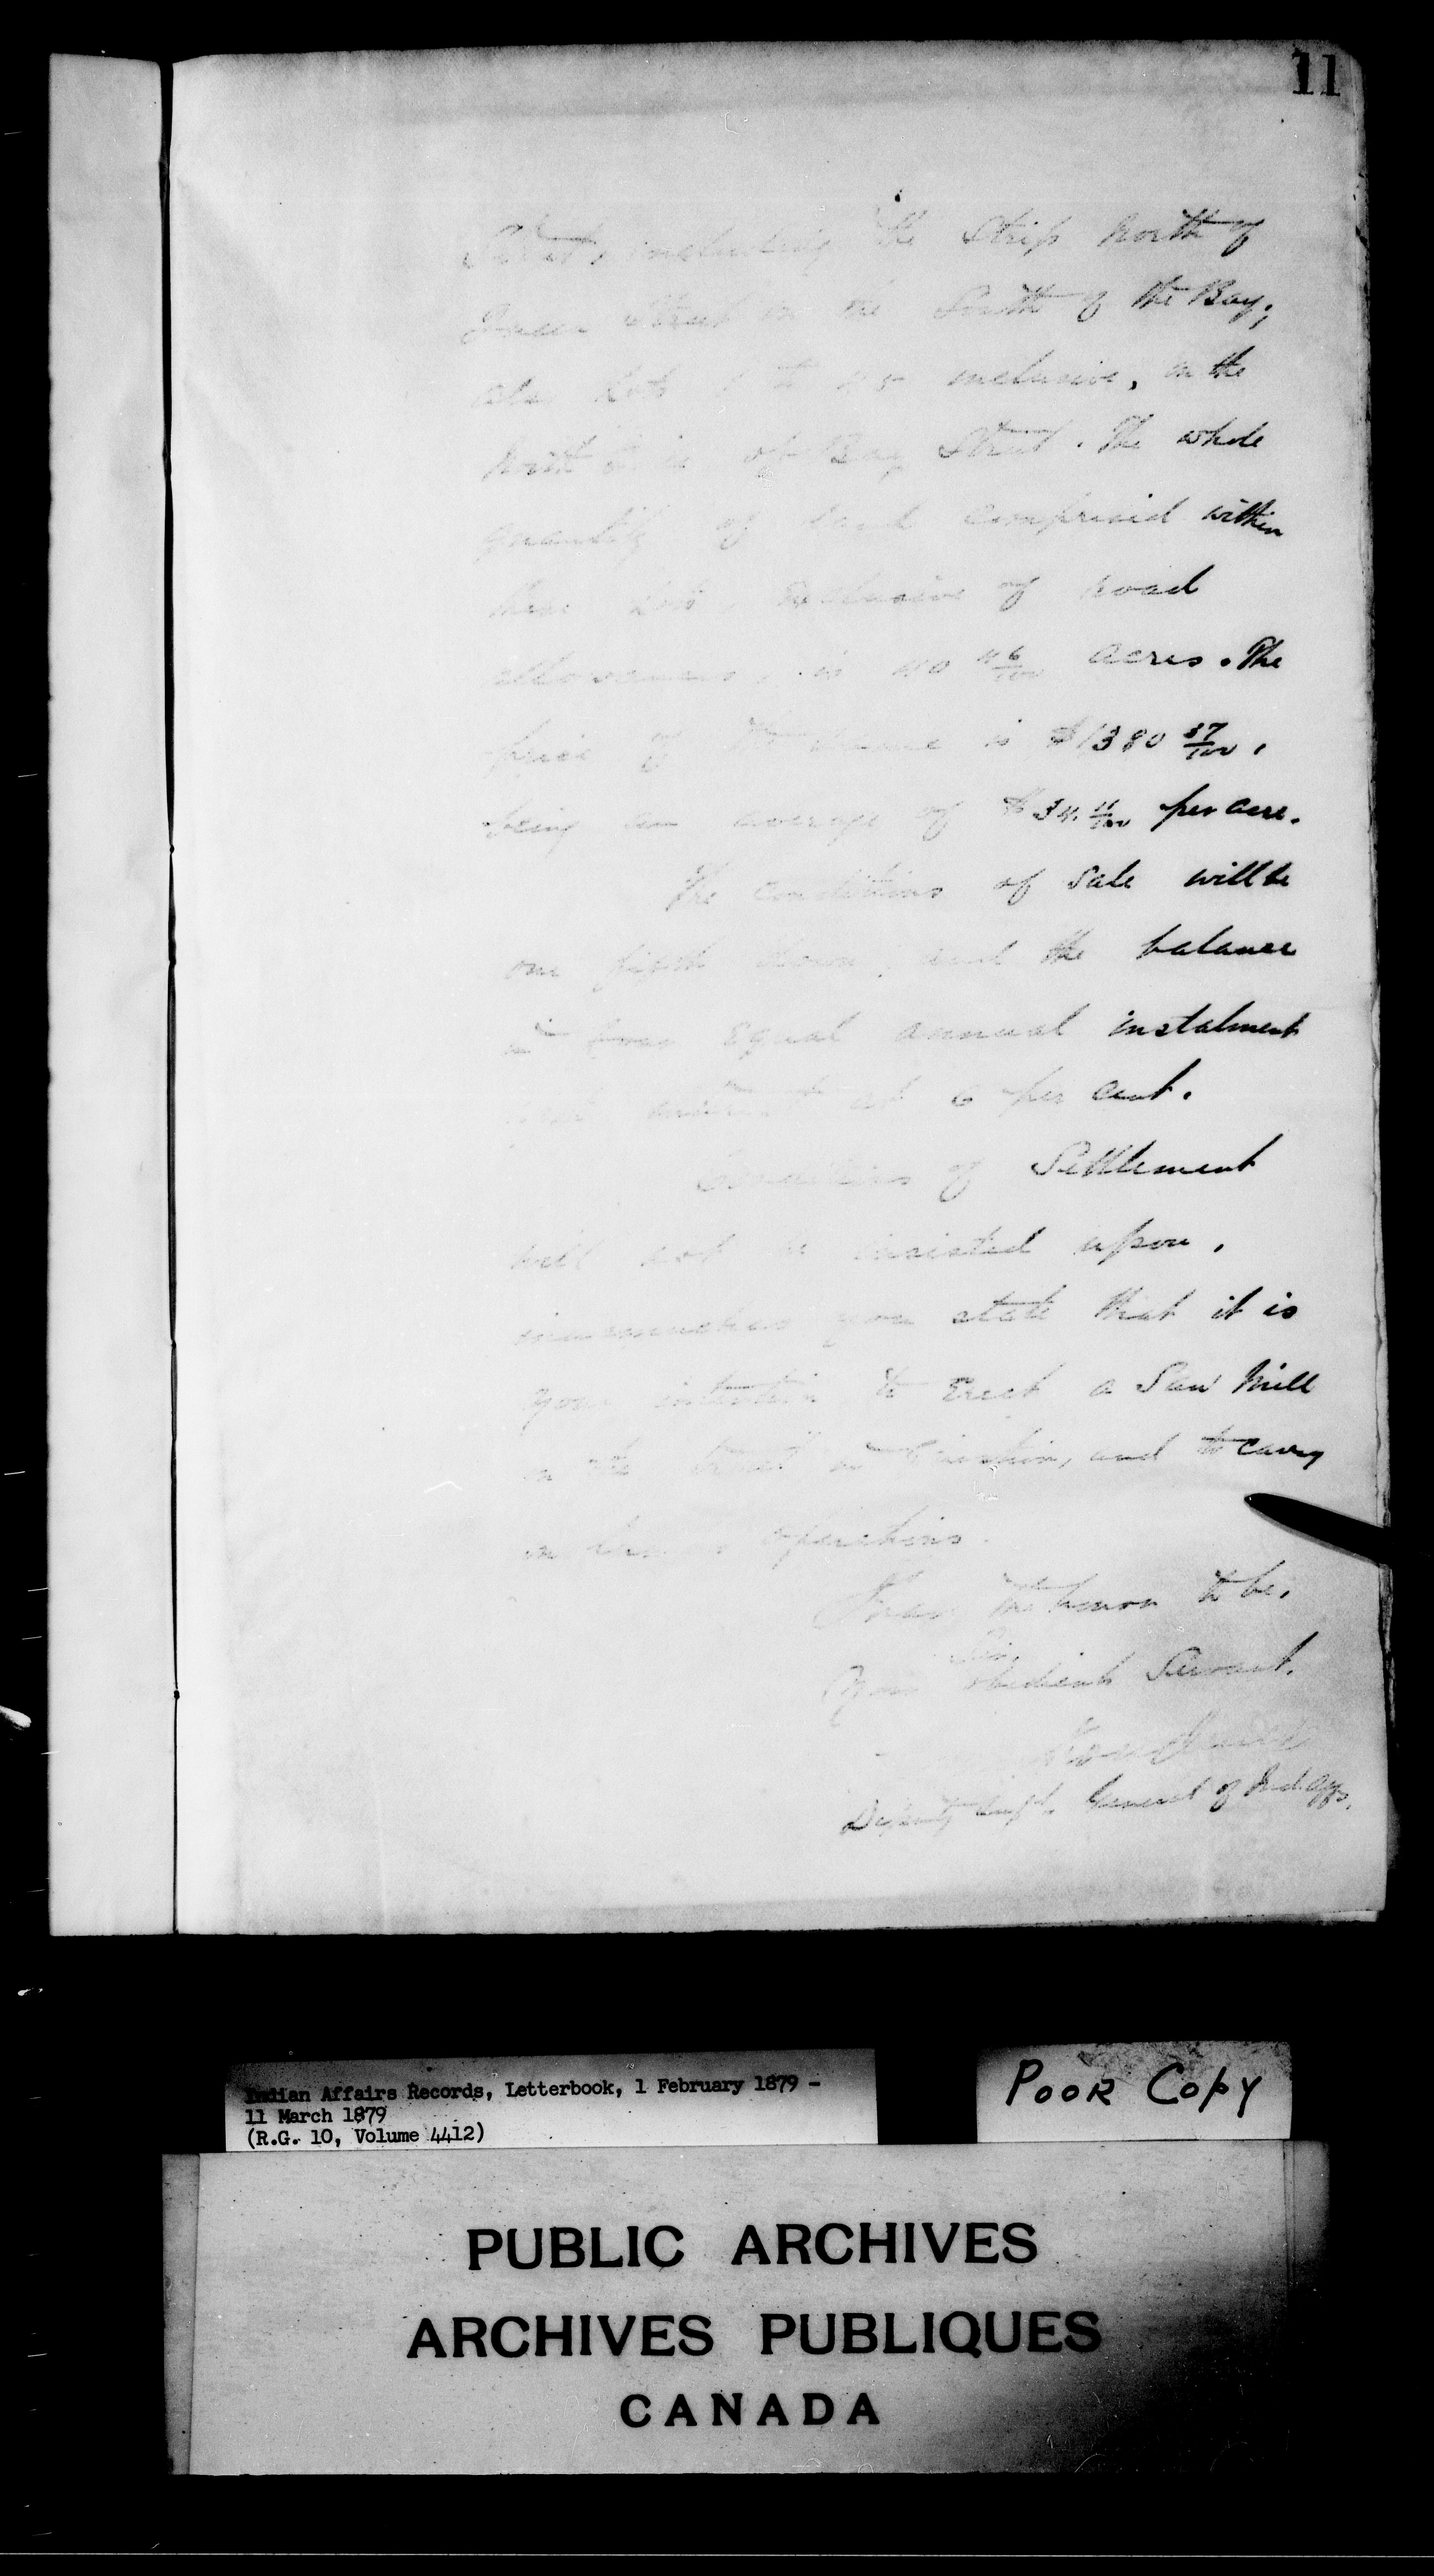 11
Street, including the Strip North of
Queen Street on the South of the Bay;
also Lots 1 to 45 inclusive, on the
North Side of Bay Street. The whole
quantity of land comprised within
these Lots, exclusive of road
allowances, is 40 46/100 acres. The
price of the same is $1380 37/100,
being an average of $34. 11/100 per acre.
The conditions of Sale will be
one fifth down, and the balance
in four equal annual instalments
with interest at 6 per cent.
Conditions of Settlement
will not be insisted upon,
inasmuch as you state that it is
your intention to erect a Saw Mill
on the tract in question, and to carry
on operations.
I have the honor to be,
Sir,
Your obedient Servant.
Deputy Supt. General of Ind. Affs.
Indian Affairs Records, Letterbook, 1 February 1879 -
11 March 1879
(R.G. 10, Volume 4412)
POOR COPY
PUBLIC ARCHIVES
ARCHIVES PUBLIQUES
CANADA